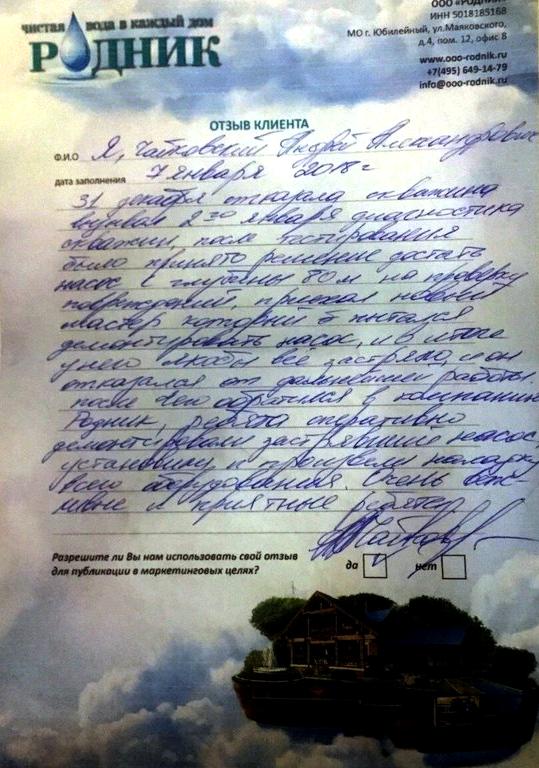 чистая вода в каждый дом
РОДНИК
ООО «РОДНИК»
ИНН 5018185168
МО г. Юбилейный, ул.Маяковского,
д.4, пом. 12, офис 8
www.ooo-rodnik.ru
+7(495) 649-14-79
info@ooo-rodnik.ru
ОТЗЫВ КЛИЕНТА
Ф.И.О Я, Чайковский Андрей Александрович
дата заполнения 7 января 2018 г
31 декабря отказала скважина
вызвал 2го января диагностика
скважин, после тестирования
было принято решение достать
насос с глубины 80 м на проверку
повреждений, приехал
мастер который пытался
демонтировать насос, и в итоге
у него якобы всё застряло, и он
отказался от дальнейшей работы.
после чего обратился в компанию
Родник, ребята оперативно
демонтировали застрявший насос,
установку и произвели наладку
всего оборудования. Очень веж-
ливые и приятные ребята
Разрешите ли Вы нам использовать свой отзыв
для публикации в маркетинговых целях?
да нет